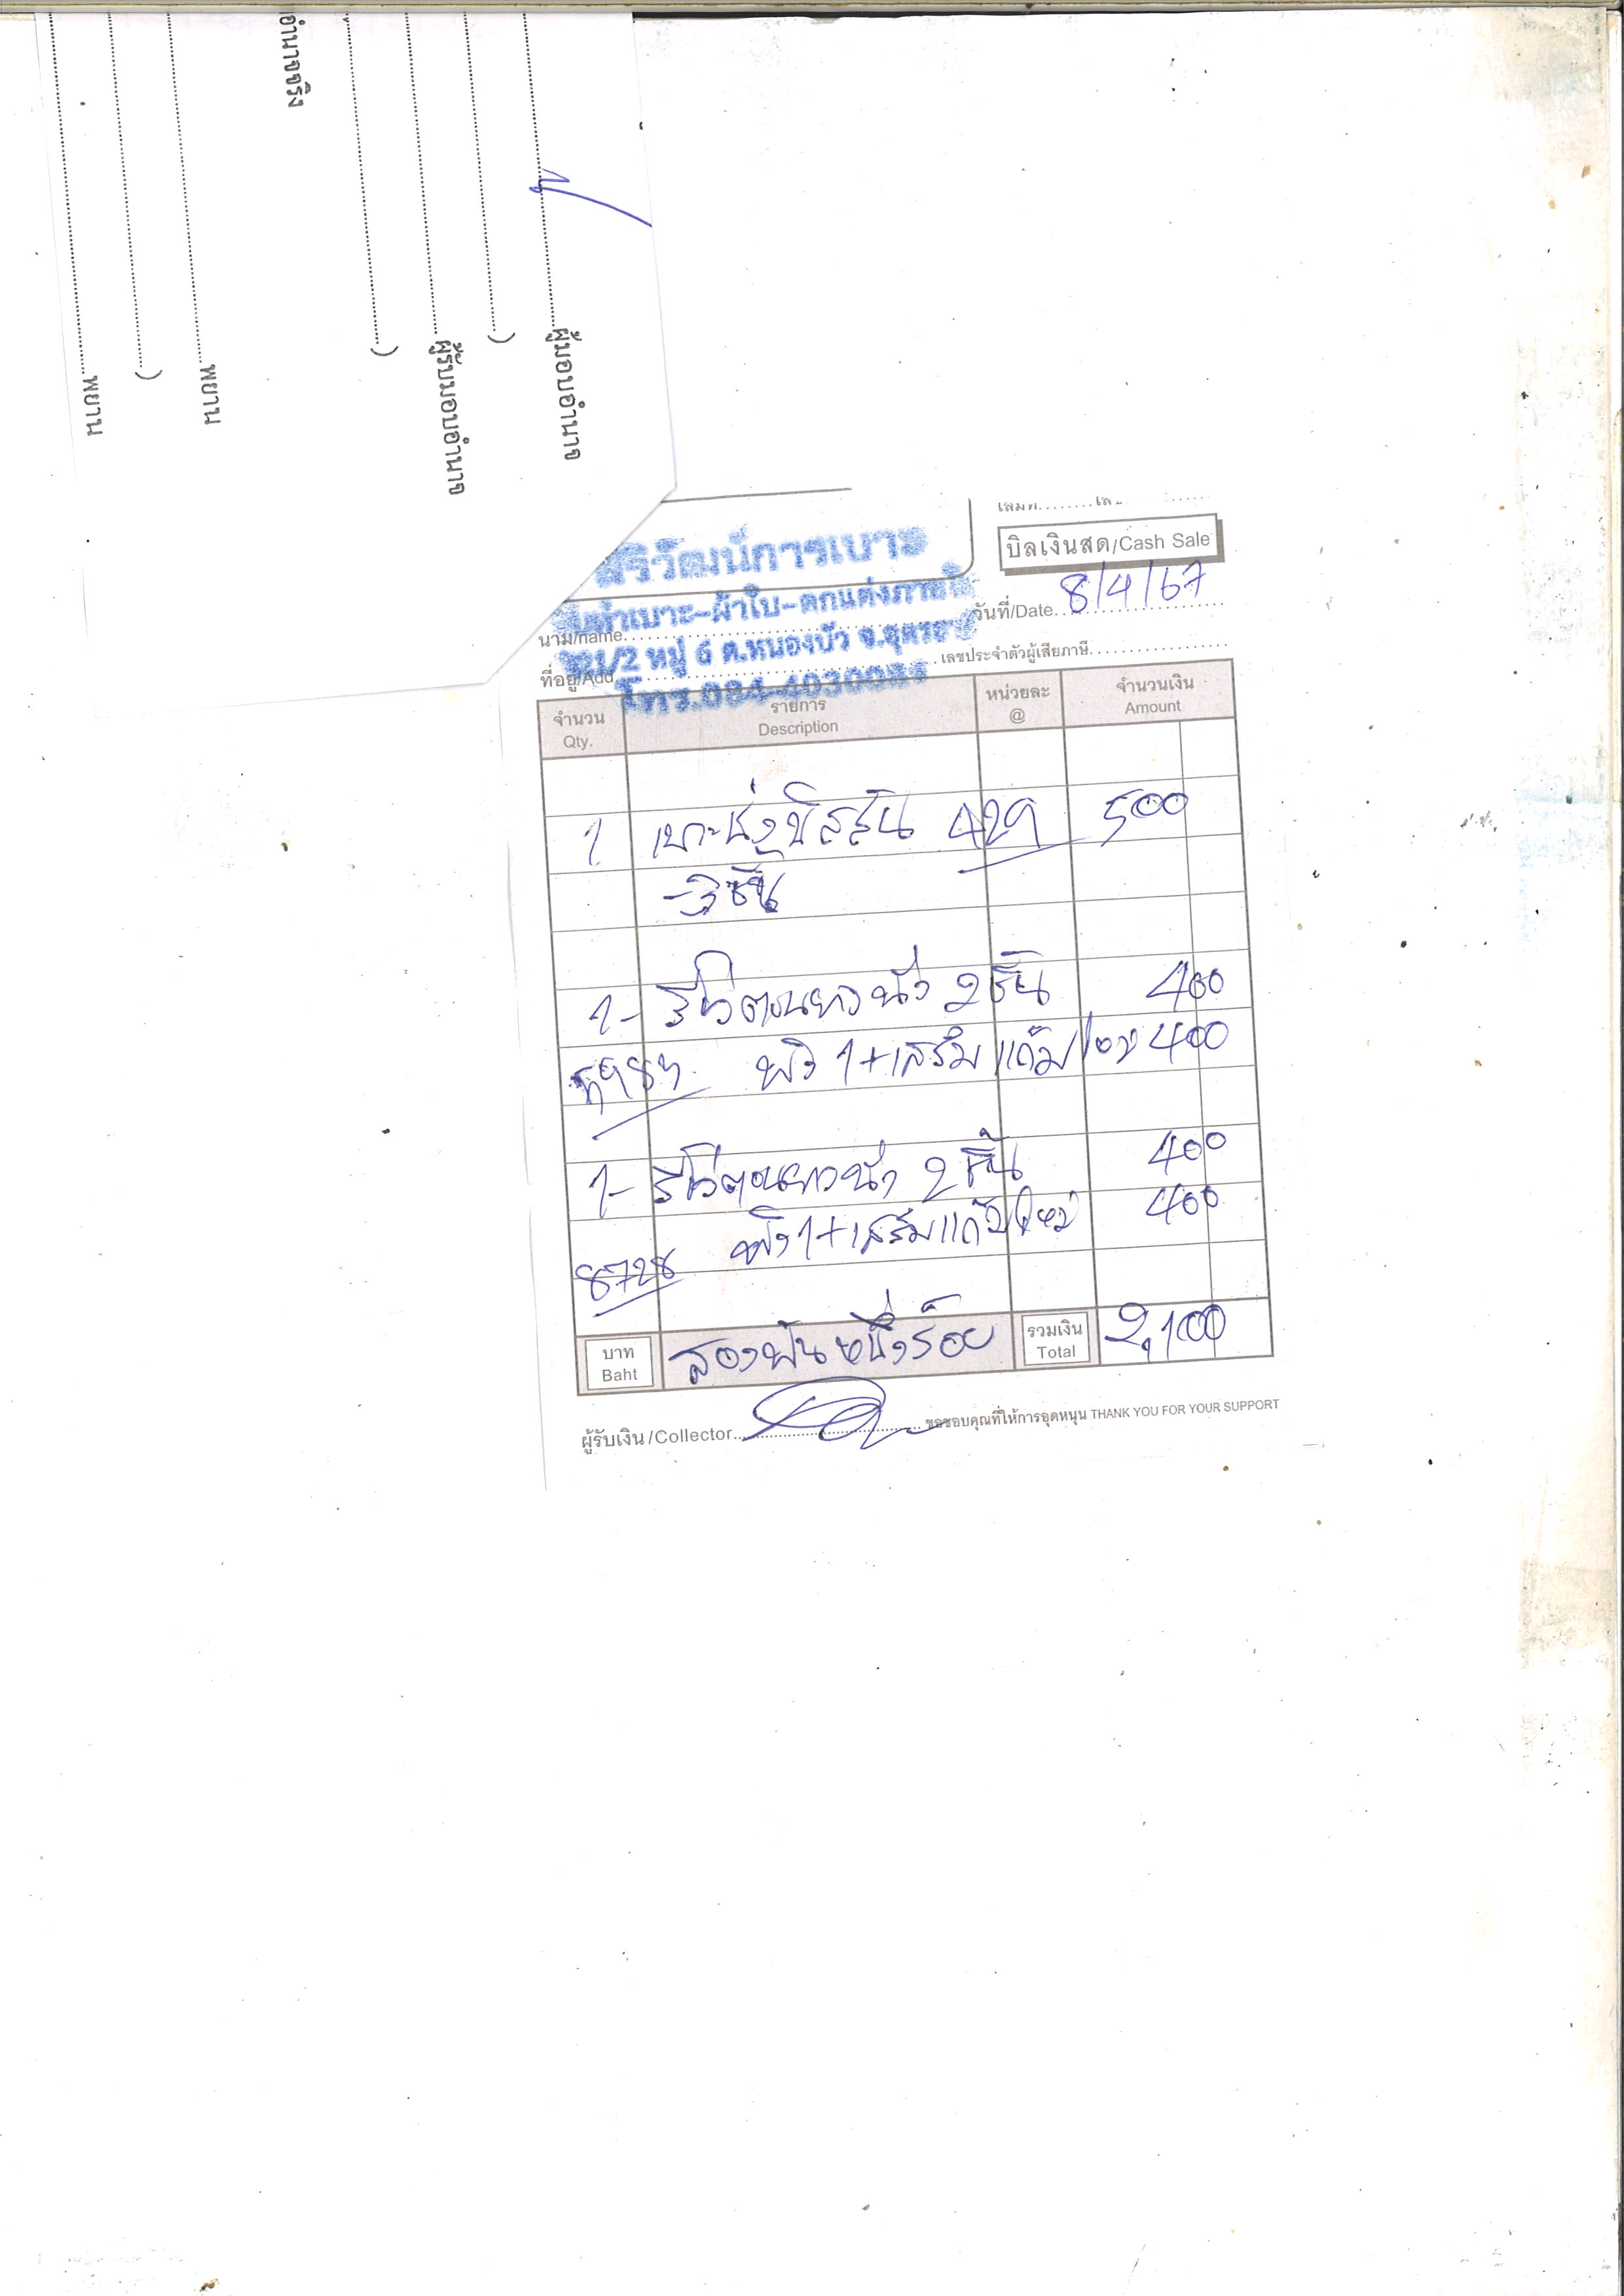 อำนาจจริง
ผู้มอบอำนาจ
)
ผู้รับมอบอำนาจ
)
พยาน
)
พยาน
บิลเงินสด/Cash Sale
ศิริวัฒน์การเบาะ
วันที่/Date 8/4/67
ทำเบาะ-ผ้าใบ-ตกแต่งภายใน
นาม/name
/2 หมู่ 6 ต.หนองบัว จ.อุดรธานี
เลขประจำตัวผู้เสียภาษี
ที่อยู่/Add
โทร.084-4030
จำนวน รายการ หน่วยละ จำนวนเงิน
Qty. Description @ Amount
1 เบาะนั่ง 429 500
- 3 ชิ้น
1- นั่ง 2 ชิ้น 400
1+เสริม 400
1- นั่ง 2 ชิ้น 400
8728 1+เสริม ใหม่ 400
บาท สองพันหนึ่งร้อย รวมเงิน 2,100
Baht Total
ผู้รับเงิน/Collector ขอขอบคุณที่ให้การอุดหนุน THANK YOU FOR YOUR SUPPORT